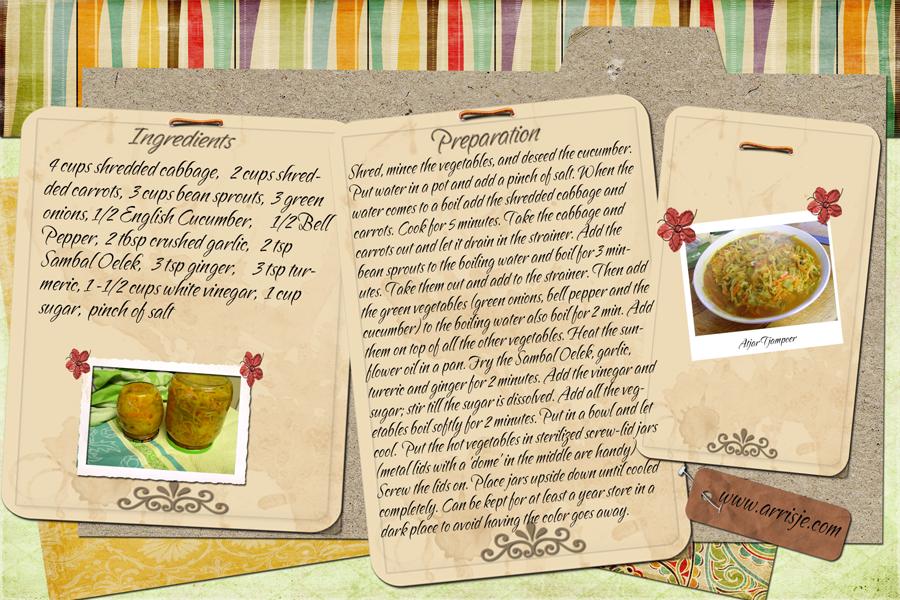 Ingredients
4 cups shredded cabbage, 2 cups shred-
ded carrots, 3 cups bean sprouts, 3 green
onions, 1/2 English Cucumber, 1/2 Bell
Pepper, 2 tbsp crushed garlic, 2 tsp
Sambal Oelek, 3 tsp ginger, 3 tsp tur-
meric, 1-1/2 cups white vinegar, 1 cup
sugar, pinch of salt
Preparation
Shred, mince the vegetables, and deseed the cucumber.
Put water in a pot and add a pinch of salt. When the
water comes to a boil add the shredded cabbage and
carrots. Cook for 5 minutes. Take the cabbage and
carrots out and let it drain in the strainer. Add the
bean sprouts to the boiling water and boil for 3 min-
utes. Take them out and add to the strainer. Then add
the green vegetables (green onions, bell pepper and the
cucumber) to the boiling water also boil for 2 min. Add
them on top of all the other vegetables. Heat the sun-
flower oil in a pan. Fry the Sambal Oelek, garlic,
tureric and ginger for 2 minutes. Add the vinegar and
sugar; stir till the sugar is dissolved. Add all the veg-
etables boil softly for 2 minutes. Put in a bowl and let
cool. Put the hot vegetables in sterilized screw-lid jars
(metal lids with a 'dome' in the middle are handy)
Screw the lids on. Place jars upside down until cooled
completely. Can be kept for at least a year store in a
dark place to avoid having the color goes away.
Atjar Tjampoer
www.arrisje.com